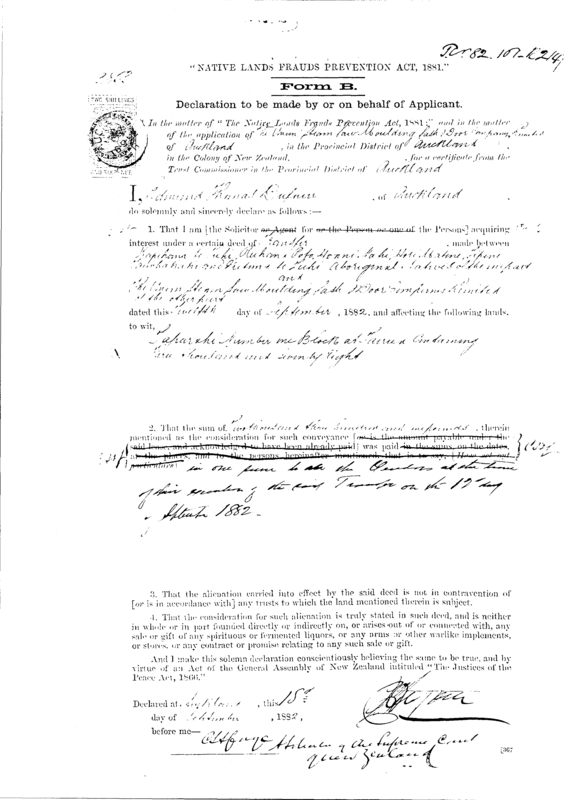 "NATIVE LANDS FRAUDS PREVENTION ACT, 1881."
Form B.
Declaration to be made by or on behalf of Applicant.
TWO SHILLINGS
In the matter of "The Native Lands Frauds Prevention Act, 1881;" and in the matter
of the application of The Union Steam Saw Moulding Sash & Door Company Limited
of Auckland, in the Provincial District of Auckland
in the Colony of New Zealand, for a certificate from the
Trust Commissioner in the Provincial District of Auckland
I, Edmund Thomas Dufaur of Auckland
do solemnly and sincerely declare as follows:—
1. That I am [the Solicitor or Agent for or the Person or one of the Persons] acquiring
interest under a certain deed of Transfer, made between
Aboriginal Natives of the one part
and
The Union Steam Saw Moulding Sash & Door Company Limited
of the other part
dated this Twelfth day of September, 1882, and affecting the following lands,
to wit,
Number one Block at Containing
thousand and seventy eight
2. That the sum of hundred and pounds, therein
mentioned as the consideration for such conveyance [or is the amount payable under the
said lease, and acknowledged to have been already paid] was paid in the sums, on the dates,
at the places, and to the persons hereinafter mentioned, that is to say, [Here set out
particulars]
in one sum to the Vendors at the time
of their execution of the said Transfer on the 12th day
of September 1882 -
3. That the alienation carried into effect by the said deed is not in contravention of
[or is in accordance with] any trusts to which the land mentioned therein is subject.
4. That the consideration for such alienation is truly stated in such deed, and is neither
in whole or in part founded directly or indirectly on, or arises out of or connected with, any
sale or gift of any spirituous or fermented liquors, or any arms or other warlike implements,
or stores, or any contract or promise relating to any such sale or gift.
And I make this solemn declaration conscientiously believing the same to be true, and by
virtue of an Act of the General Assembly of New Zealand intituled "The Justices of the
Peace Act, 1866."
Declared at Auckland, this 18th
day of September, 1882,
before me—
A Solicitor of the Supreme Court
of New Zealand